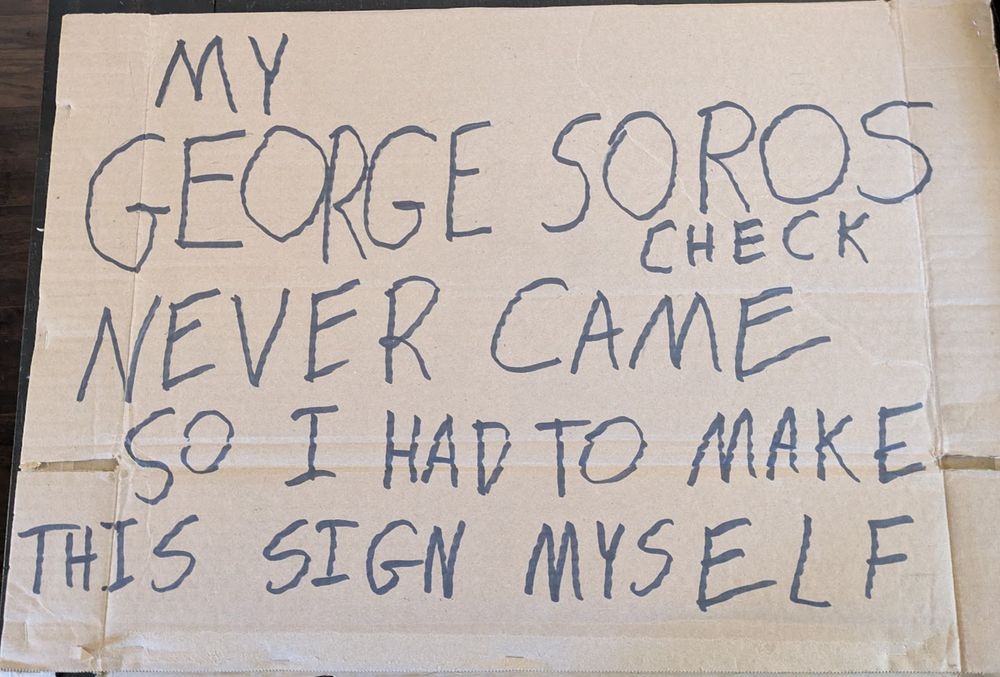 MY
GEORGE SOROS
CHECK
NEVER CAME
SO I HAD TO MAKE
THIS SIGN MYSELF